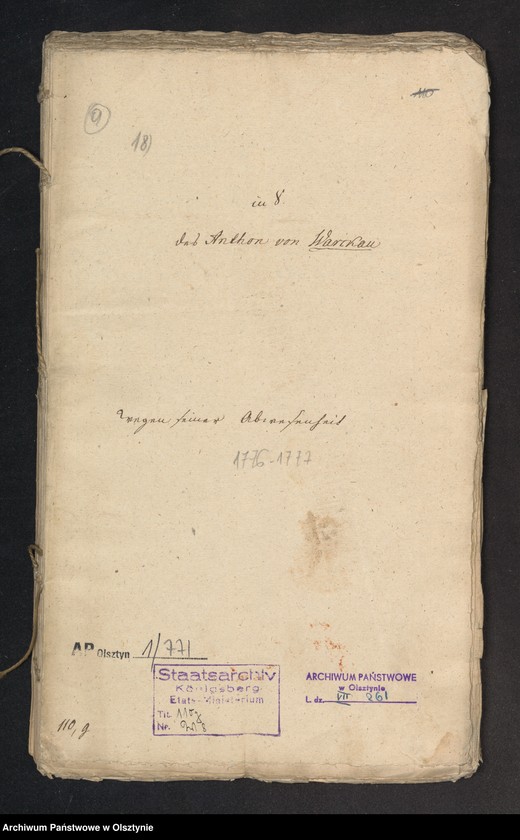 110
9
18)
in 8.
des Anthon von Warckau
wegen seiner Abwesenheit
1776-1777
AP Olsztyn 1/771
Staatsarchiv
Königsberg
Etats-Ministerium
Tit. 110g
Nr.
ARCHIWUM PAŃSTWOWE
w Olsztynie
L. dz. VII 861
110, g
Archiwum Państwowe w Olsztynie